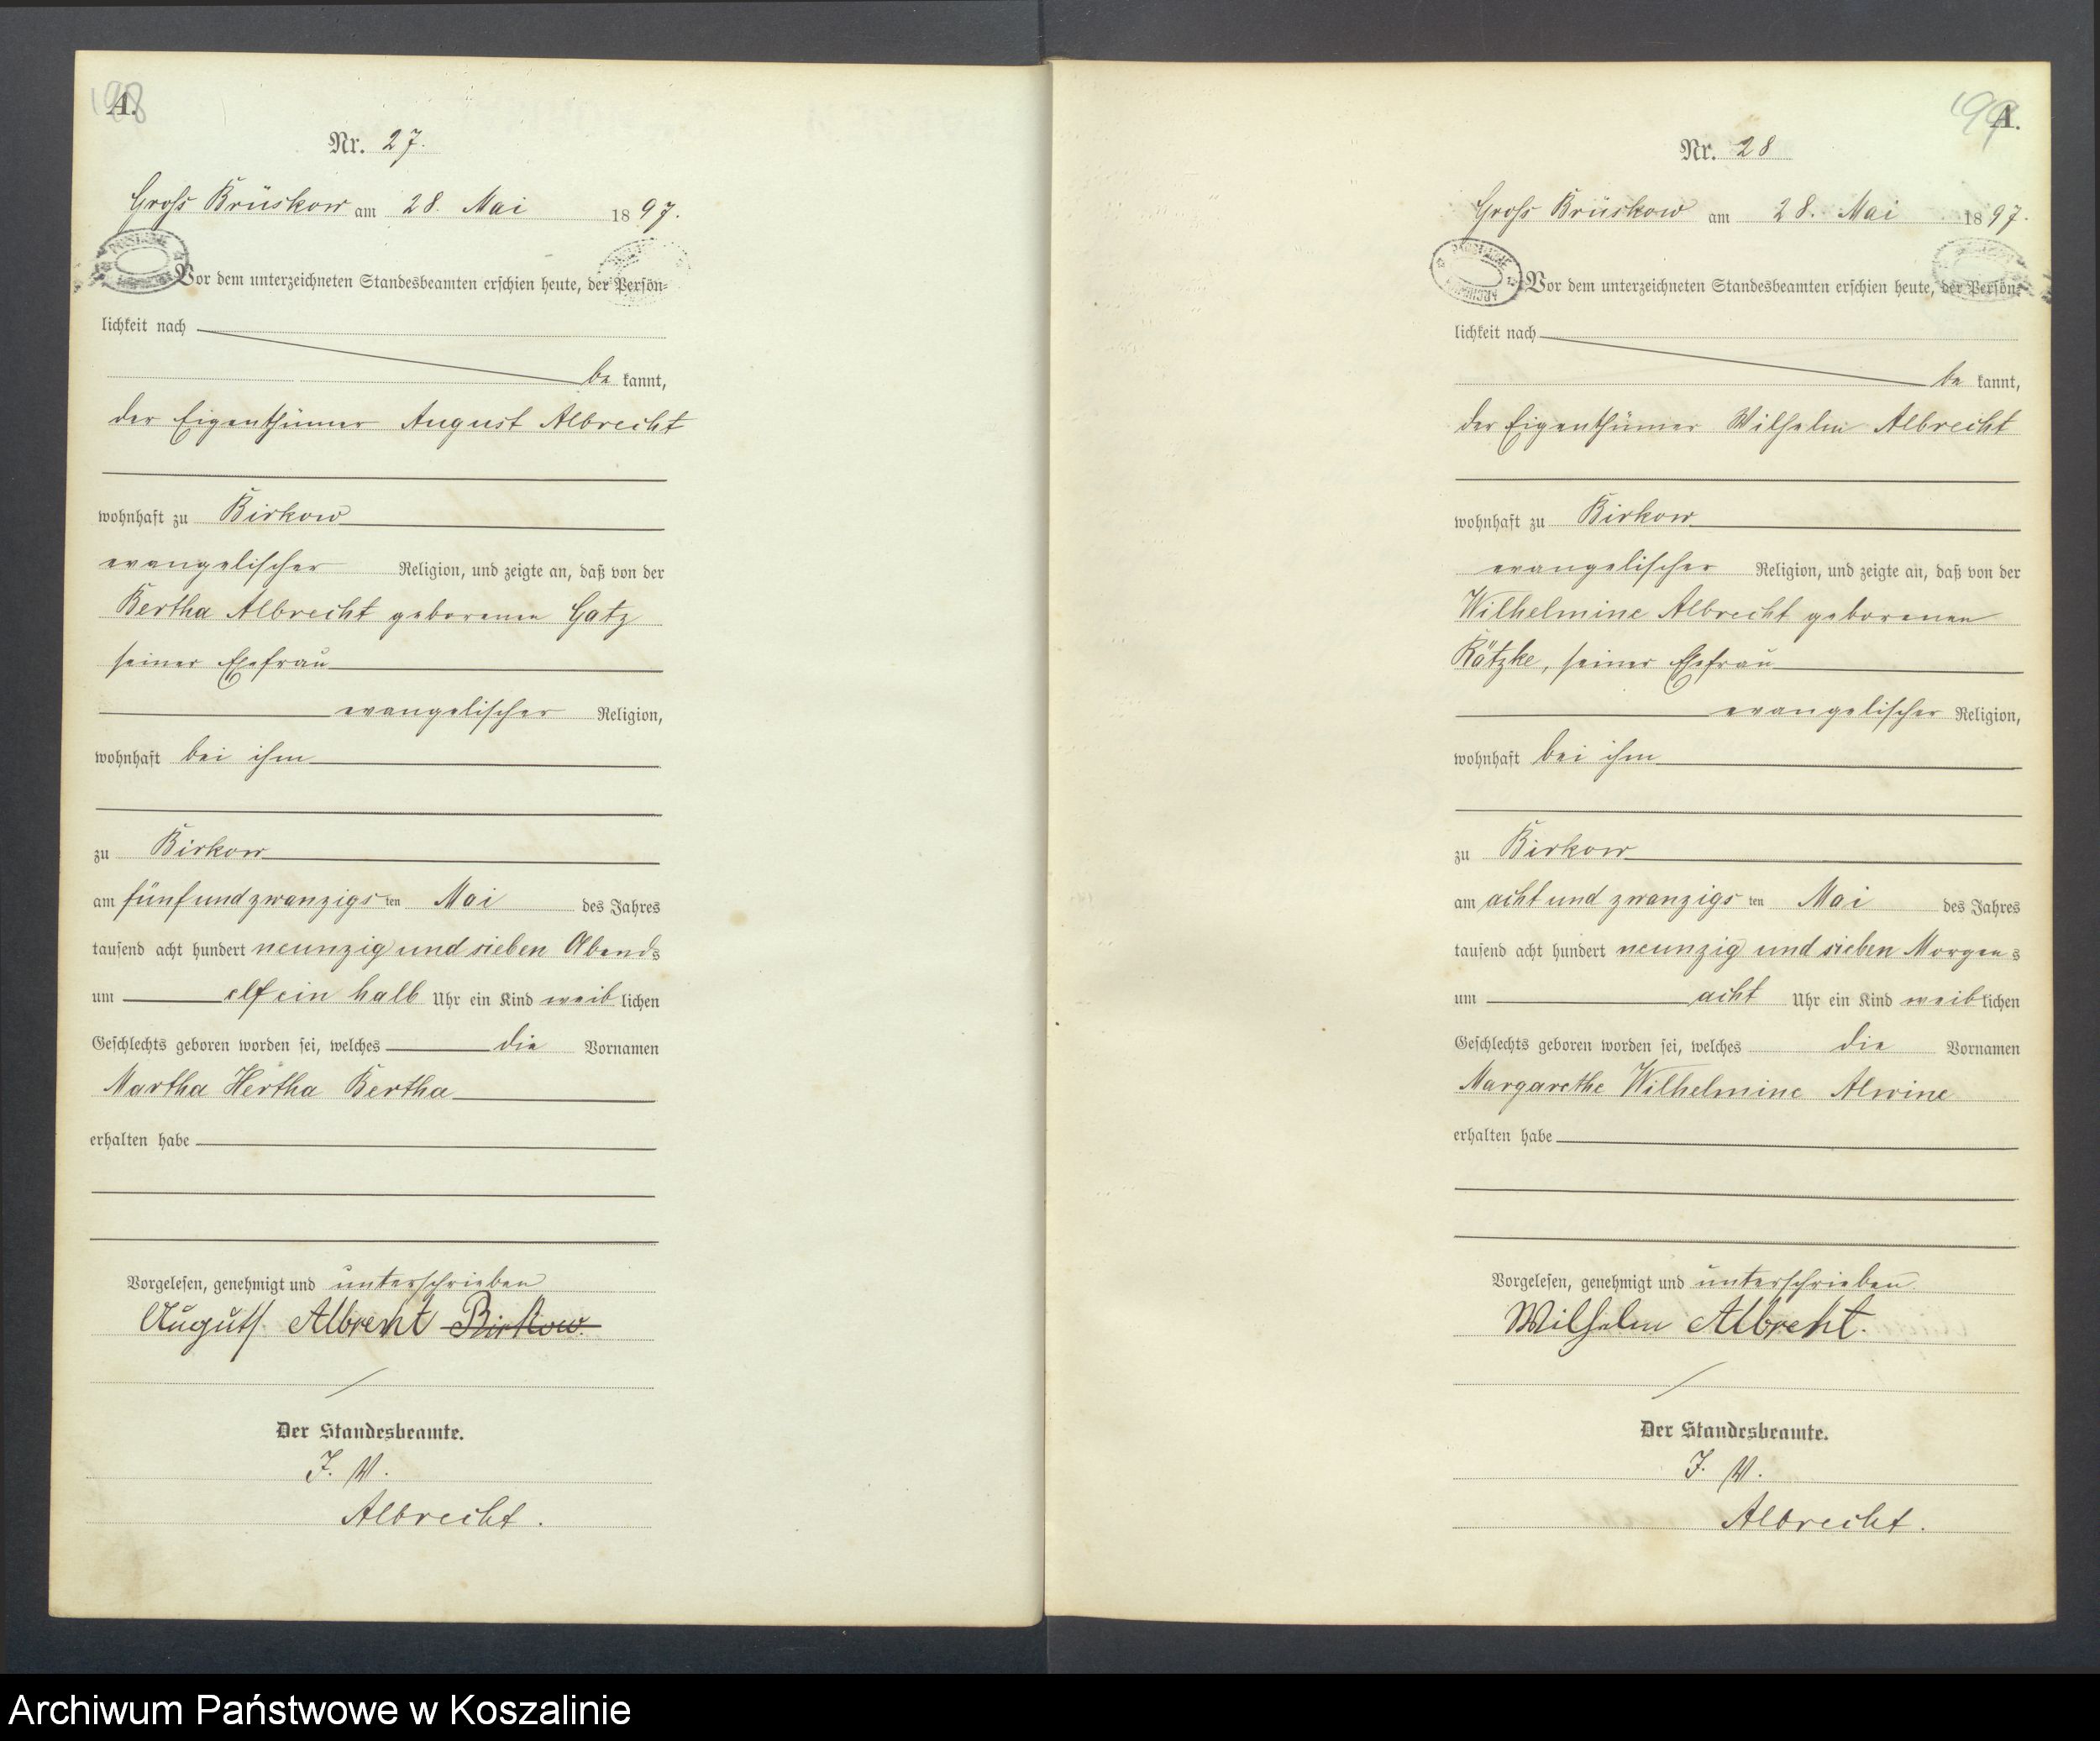 198
A.
Nr. 27.
Gross Brüskow am 28. Mai 1897.
Vor dem unterzeichneten Standesbeamten erschien heute, der Persön-
lichkeit nach
be kannt,
der Eigenthümer August Albrecht
wohnhaft zu Birkow
evangelischer Religion, und zeigte an, daß von der
Bertha Albrecht geborenen Gatz
seiner Ehefrau
evangelischer Religion,
wohnhaft bei ihm
zu Birkow
am fünfundzwanzigsten Mai des Jahres
tausend acht hundert neunzig und sieben Abends
um elf ein halb Uhr ein Kind weiblichen
Geschlechts geboren worden sei, welches die Vornamen
Martha Hertha Bertha
erhalten habe
Vorgelesen, genehmigt und unterschrieben
August Albrecht Birkow.
Der Standesbeamte.
J. V.
Albrecht.
199
A.
Nr. 28
Gross Brüskow am 28. Mai 1897.
Vor dem unterzeichneten Standesbeamten erschien heute, der Persön-
lichkeit nach
be kannt,
der Eigenthümer Wilhelm Albrecht
wohnhaft zu Birkow
evangelischer Religion, und zeigte an, daß von der
Wilhelmine Albrecht geborenen
Kötzke, seiner Ehefrau
evangelischer Religion,
wohnhaft bei ihm
zu Birkow
am acht und zwanzigsten Mai des Jahres
tausend acht hundert neunzig und sieben Morgens
um acht Uhr ein Kind weiblichen
Geschlechts geboren worden sei, welches die Vornamen
Margarethe Wilhelmine Alwine
erhalten habe
Vorgelesen, genehmigt und unterschrieben
Wilhelm Albrecht.
Der Standesbeamte.
J. V.
Albrecht.
Archiwum Państwowe w Koszalinie